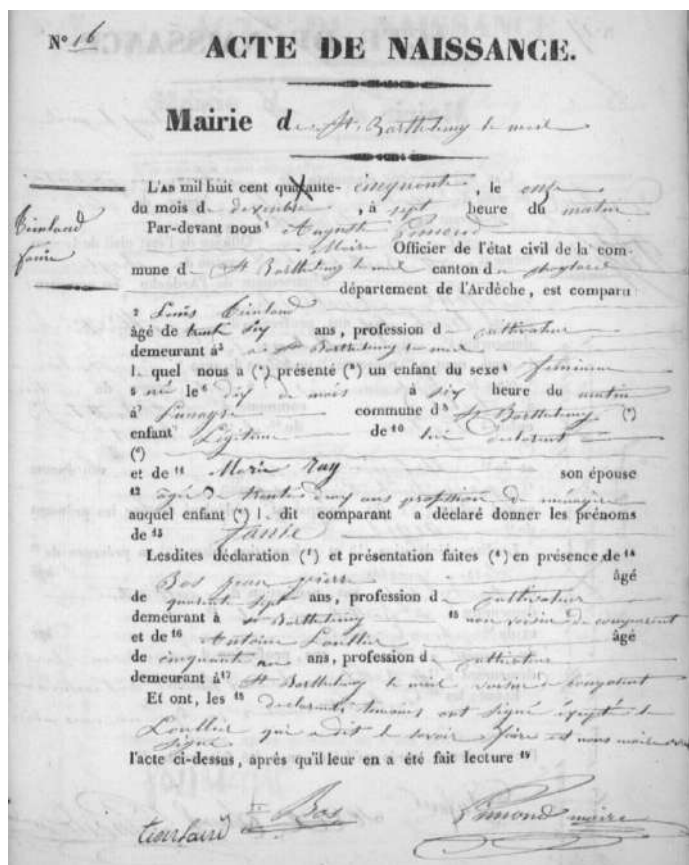 N° 16
ACTE DE NAISSANCE.
Mairie de St Barthelemy le meil
L'AN mil huit cent quarante- cinquante, le onze
du mois de dexembre, à sept heure du matin
Par-devant nous Auguste Pimond
Maire Officier de l'état civil de la com-
mune de St Barthelemy le meil canton du
département de l'Ardèche, est comparu
2 Louis
âgé de trente six ans, profession de cultivateur
demeurant à³ a St Barthelemy le meil
l quel nous a (*) présenté (*) un enfant du sexe⁴ féminin
5 né le⁶ dix de mois à six heure du matin
à⁷ commune d⁸ St Barthelemy (*)
enfant⁹ Légitime de 10 declarant
(*)
et de 11 Marie Ruy son épouse
12 agée de trente deux ans profession de ménagère
auquel enfant (*) l dit comparant a déclaré donner les prénoms
de 13 fanie
Lesdites déclaration (*) et présentation faites (*) en présence de 14
Bos jean pierre âgé
de quarente sept ans, profession de cultivateur
demeurant à St Barthelemy 15 non voisin du comparent
et de 16 Antoine Loullier âgé
de cinquante ans, profession de cultivateur
demeurant à 17 St Barthelemy le meil voisin du comparent
Et ont, les 18 declarent temoins ont signé éxepté le
Loullier qui a dit le savoir faire et nous maire
signé
l'acte ci-dessus, après qu'il leur en a été fait lecture 19
Bos Pimond maire